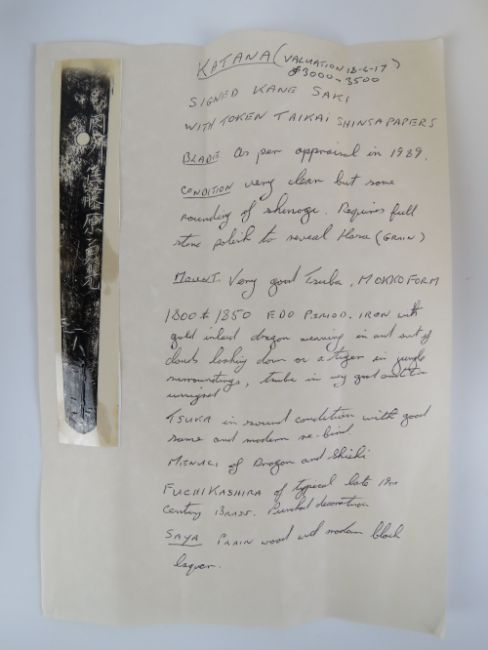 岡 住藤原
KATANA (VALUATION 18-6-17)
$3000-3500
SIGNED KANE SAKI
WITH TOKEN TAIKAI SHINSA PAPERS
BLADE As per appraisal in 1989.
CONDITION very clean but some
rounding of shinogi. Requires full
stone polish to reveal Hara (GRAIN)
MOUNT. Very good Tsuba, MOKKO FORM
1800 to 1850 EDO PERIOD. IRON with
gold inlaid dragon weaving in and out of
clouds looking down on a tiger in jungle
surroundings, tsuba in very good
unsigned
TSUKA in sound condition with good
same and modern re-bind
MENUKI of Dragon and Shishi
FUCHI KASHIRA of typical late 19th
century BRASS. Punched decoration
SAYA PLAIN wood with modern black
laquer.